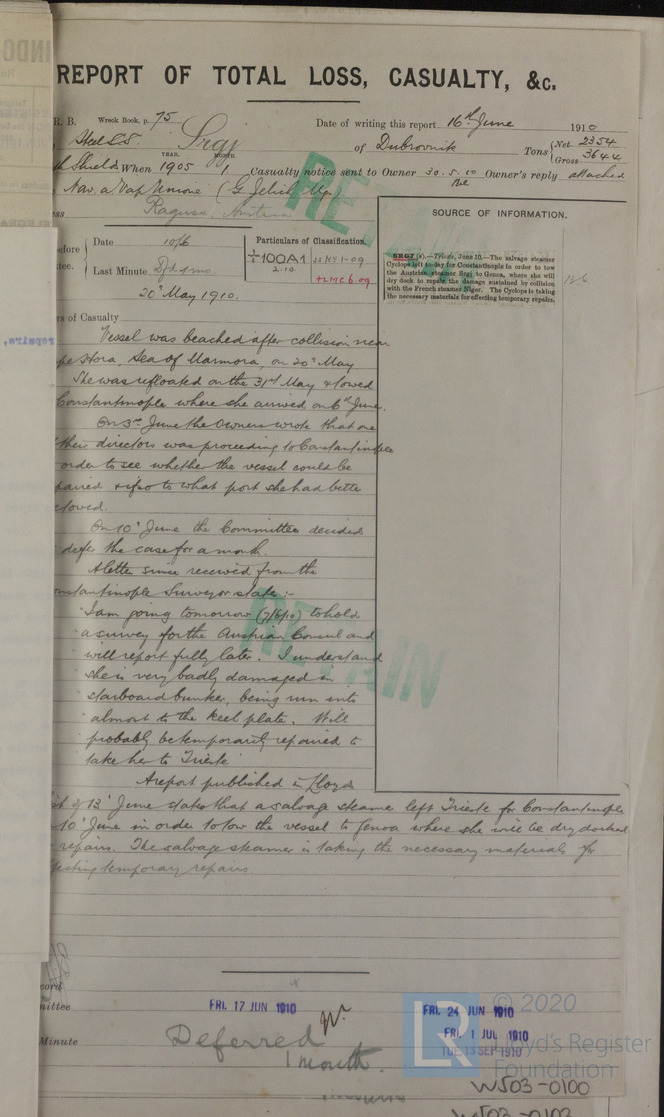 REPORT OF TOTAL LOSS, CASUALTY, &c.
R. B. Wreck Book, p. 75
Date of writing this report 16th June 1910
Steel S.S. Srgj of Dubrovnik
Tons { Net 2354
Gross 3644
th Shields When YEAR. 1905 MONTH 1 Casualty notice sent to Owner 30.5.10 Owner's reply attached
Nav. a Vap Unione (G. Jelich, Mgr.)
ess Ragusa, Austria
SOURCE OF INFORMATION.
efore
tee.
Date 10/6
Last Minute
20th May 1910.
Particulars of Classification.
100A1
2.10.
SRGJ (s).—Trieste, June 10.—The salvage steamer
Cyclops left to-day for Constantinople in order to tow
the Austrian steamer Srgj to Genoa, where she will
dry dock to repair the damage sustained by collision
with the French steamer Niger. The Cyclops is taking
the necessary materials for effecting temporary repairs.
13/6
repairs,
rs of Casualty
Vessel was beached after collision near
pe Hora, Sea of Marmora, on 20th May
She was refloated on the 31st May & towed
Constantinople where she arrived on 6th June.
On 3rd June the Owners wrote that one
their directors was proceeding to Constantinople
order to see whether the vessel could be
paired & if so to what port she had better
towed.
On 10th June the Committee decided
defer the case for a month.
A letter since received from the
onstantinople Surveyor states :-
"I am going tomorrow (7/6/10) to hold
" a survey for the Austrian Consul and
" will report fully later. I understand
" she is very badly damaged in
" starboard bunker, being run into
" almost to the keel plate. Will
" probably be temporarily repaired to
" take her to Trieste"
A report published in Lloyds
st of 13th June states that a salvage steamer left Trieste for Constantinople
10th June in order to tow the vessel to Genoa where she will be dry docked
repairs. The salvage steamer is taking the necessary materials for
fecting temporary repairs.
RETAIN
RETAIN
cord
mittee
FRI. 17 JUN 1910
FRI. 24 JUN 1910
FRI. 1 JUL 1910
TUES 13 SEP 1910
Minute
Deferred
1 month.
LR
© 2020
Lloyd's Register
Foundation
W503-0100
W503-0102